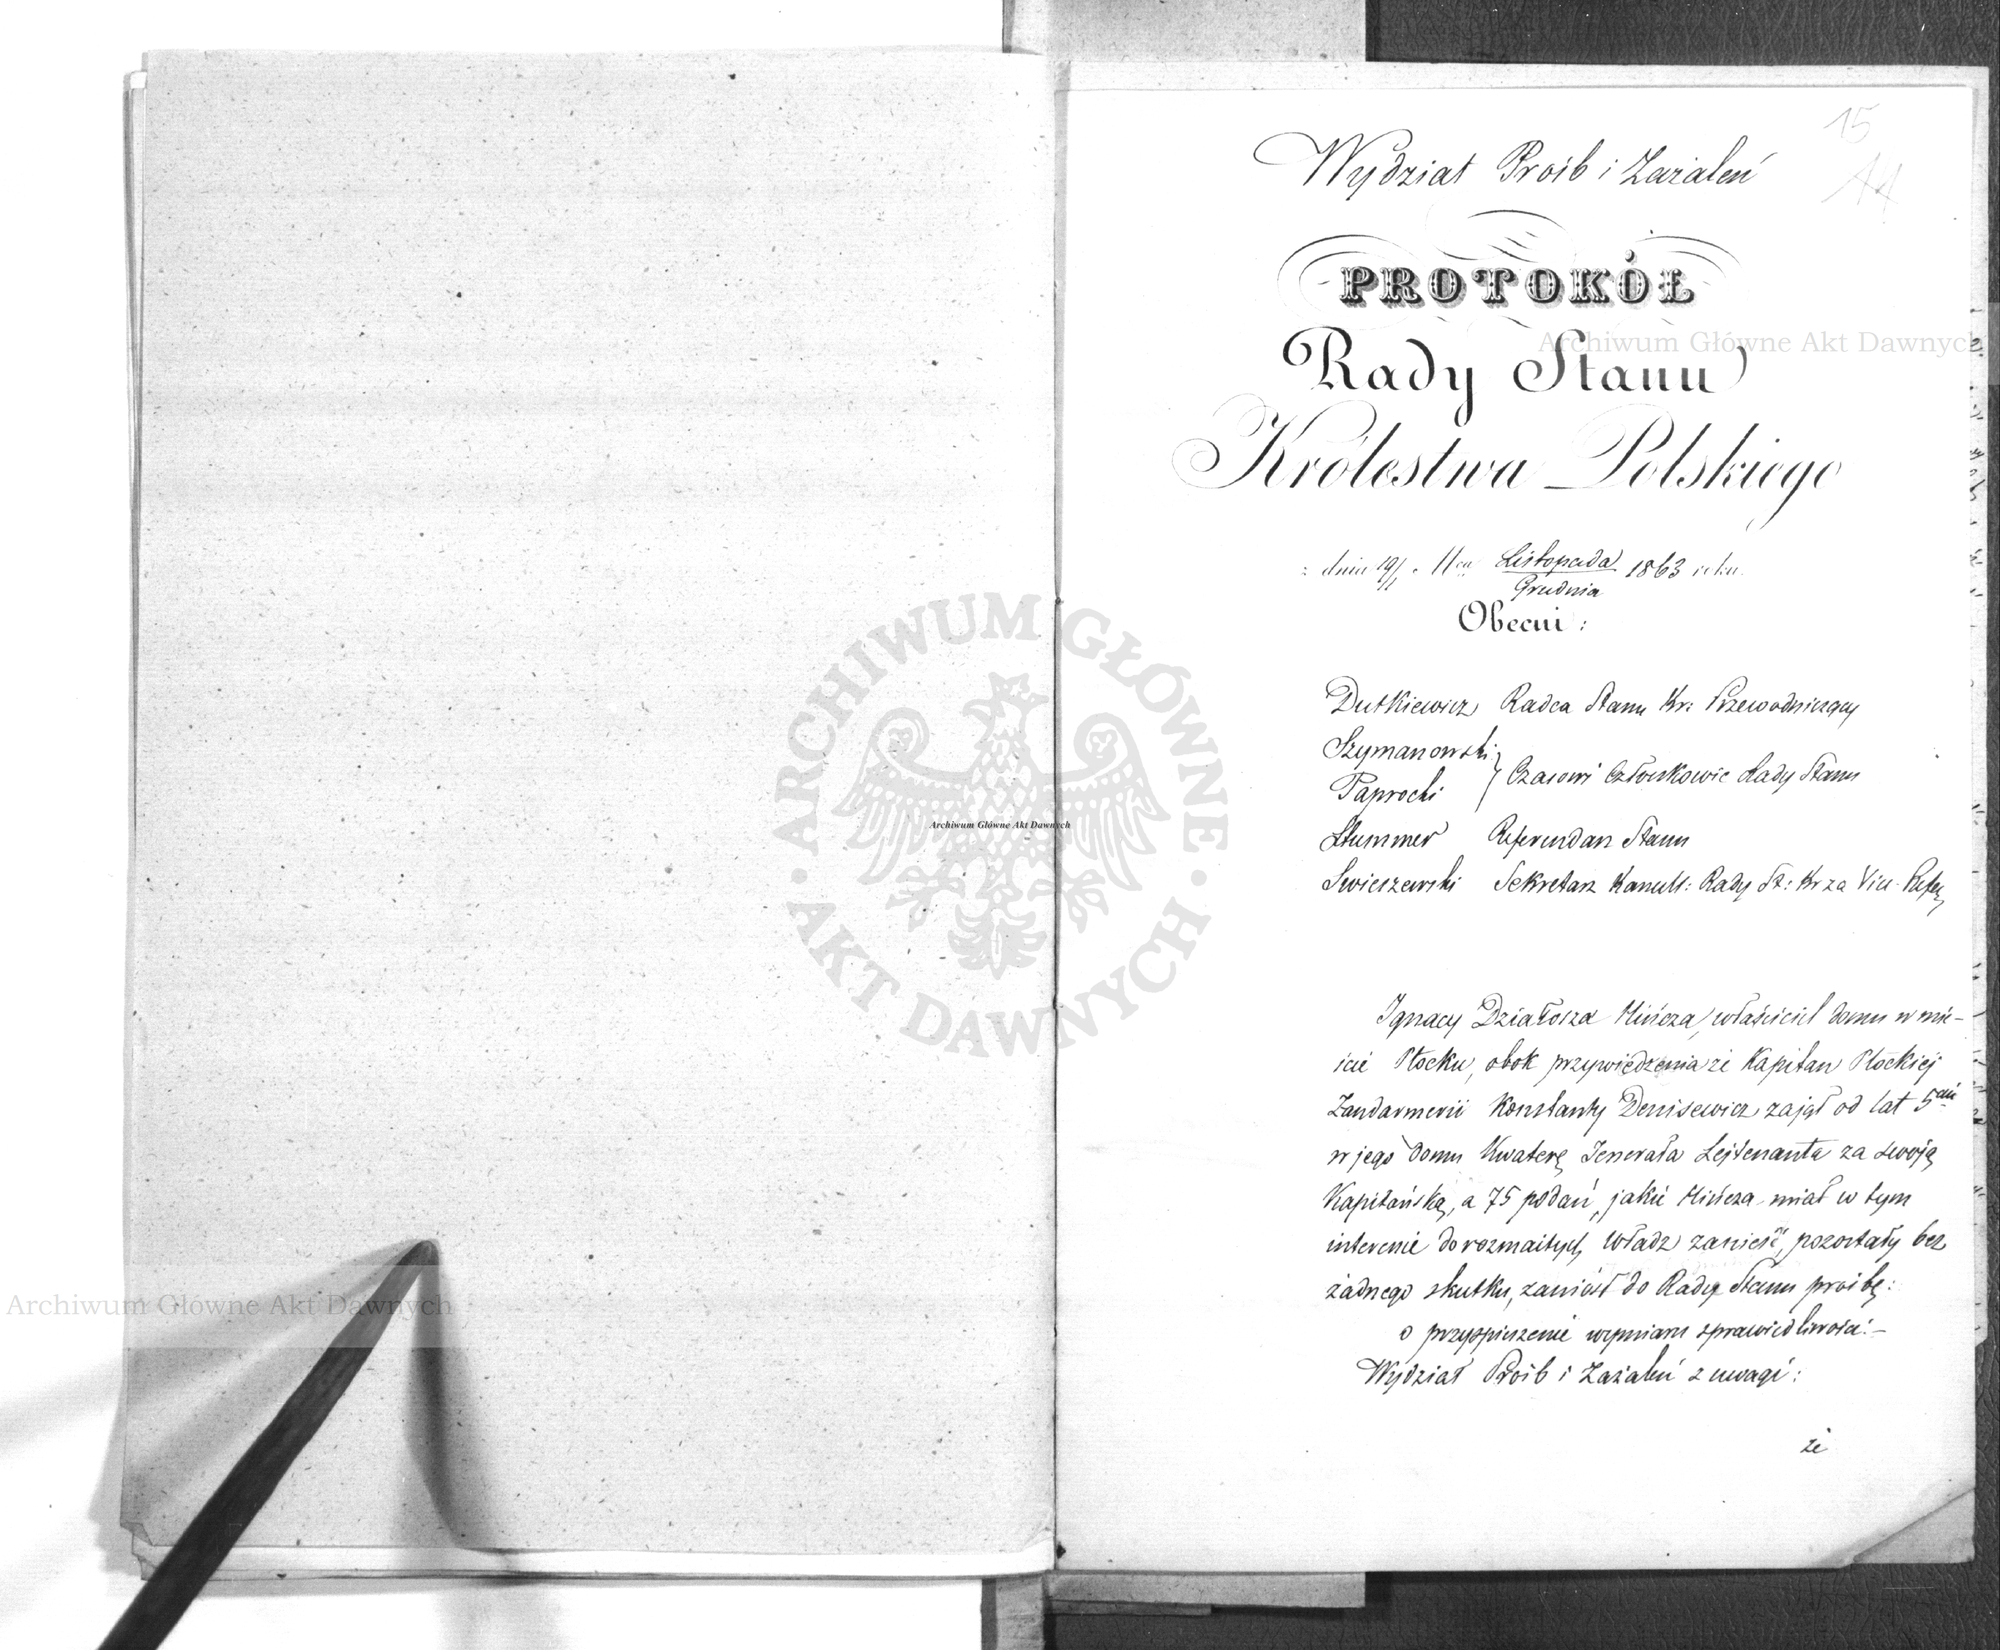 15
14
Wydział Proźb i Zażaleń
PROTOKÓŁ
Rady Stanu
Królestwa Polskiego
z dnia 19/1 Mca Listopada/Grudnia 1863 roku.
Obecni:
Dutkiewicz Radca Stanu Kr: Przewodniczący
Szymanowski
Paprocki } Czasowi Członkowie Rady Stanu
Stummer Referendarz Stanu
Swieszewski Sekretarz Kancell: Rady St: Kr za Vice-Refer
Ignacy Działosza Mińcza, właściciel domu w mie-
ście Płocku, obok przywiedzenia że Kapitan Płockiej
Żandarmerii Konstanty Denisewicz zajął od lat 5ciu
w jego domu Kwaterę Jenerała Lejtenanta za swoją
Kapitańską, a 75 podań, jakie Mińcza miał w tym
interesie do rozmaitych Władz zanieść, pozostały bez
żadnego skutku, zaniósł do Rady Stanu prośbę:
o przyspieszenie wymiaru sprawiedliwości.—
Wydział Próśb i Zażaleń z uwagi:
że
Archiwum Główne Akt Dawnych
Archiwum Główne Akt Dawnych
Archiwum Główne Akt Dawnych
ARCHIWUM GŁÓWNE · AKT DAWNYCH ·